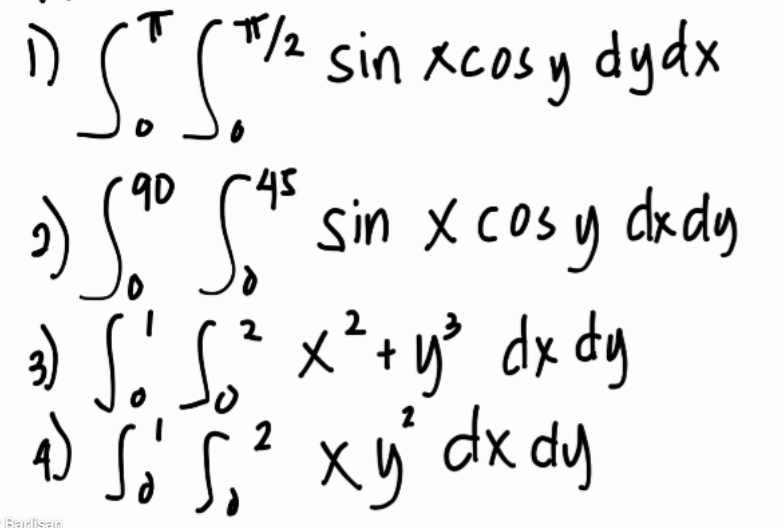 1) ∫₀^π ∫₀^π/2 sin x cos y dy dx
2) ∫₀^90 ∫₀^45 sin x cos y dx dy
3) ∫₀^1 ∫₀^2 x² + y³ dx dy
4) ∫₀^1 ∫₀^2 x y² dx dy
Barlisan